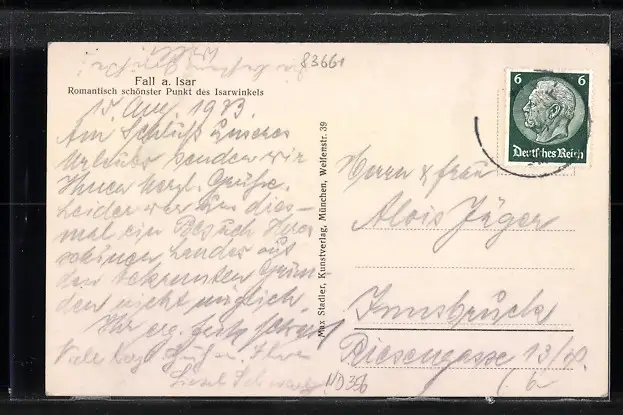 83661
Fall a. Isar
Romantisch schönster Punkt des Isarwinkels
15. Aug. 1933.
Am Schluß unseres
Urlaubs senden wir
Ihnen herzl. Grüße.
Leider war uns dies-
mal ein Besuch Ihres
schönen Landes aus
den bekannten Grün-
den nicht möglich.
Ihr erg.
Viele herzl. Grüße Ihre
Liesel
Max Stadler, Kunstverlag, München, Welfenstr. 39
6 6
Deutsches Reich
Herrn & Frau
Alois Jäger
Innsbruck
Riesengasse 13/